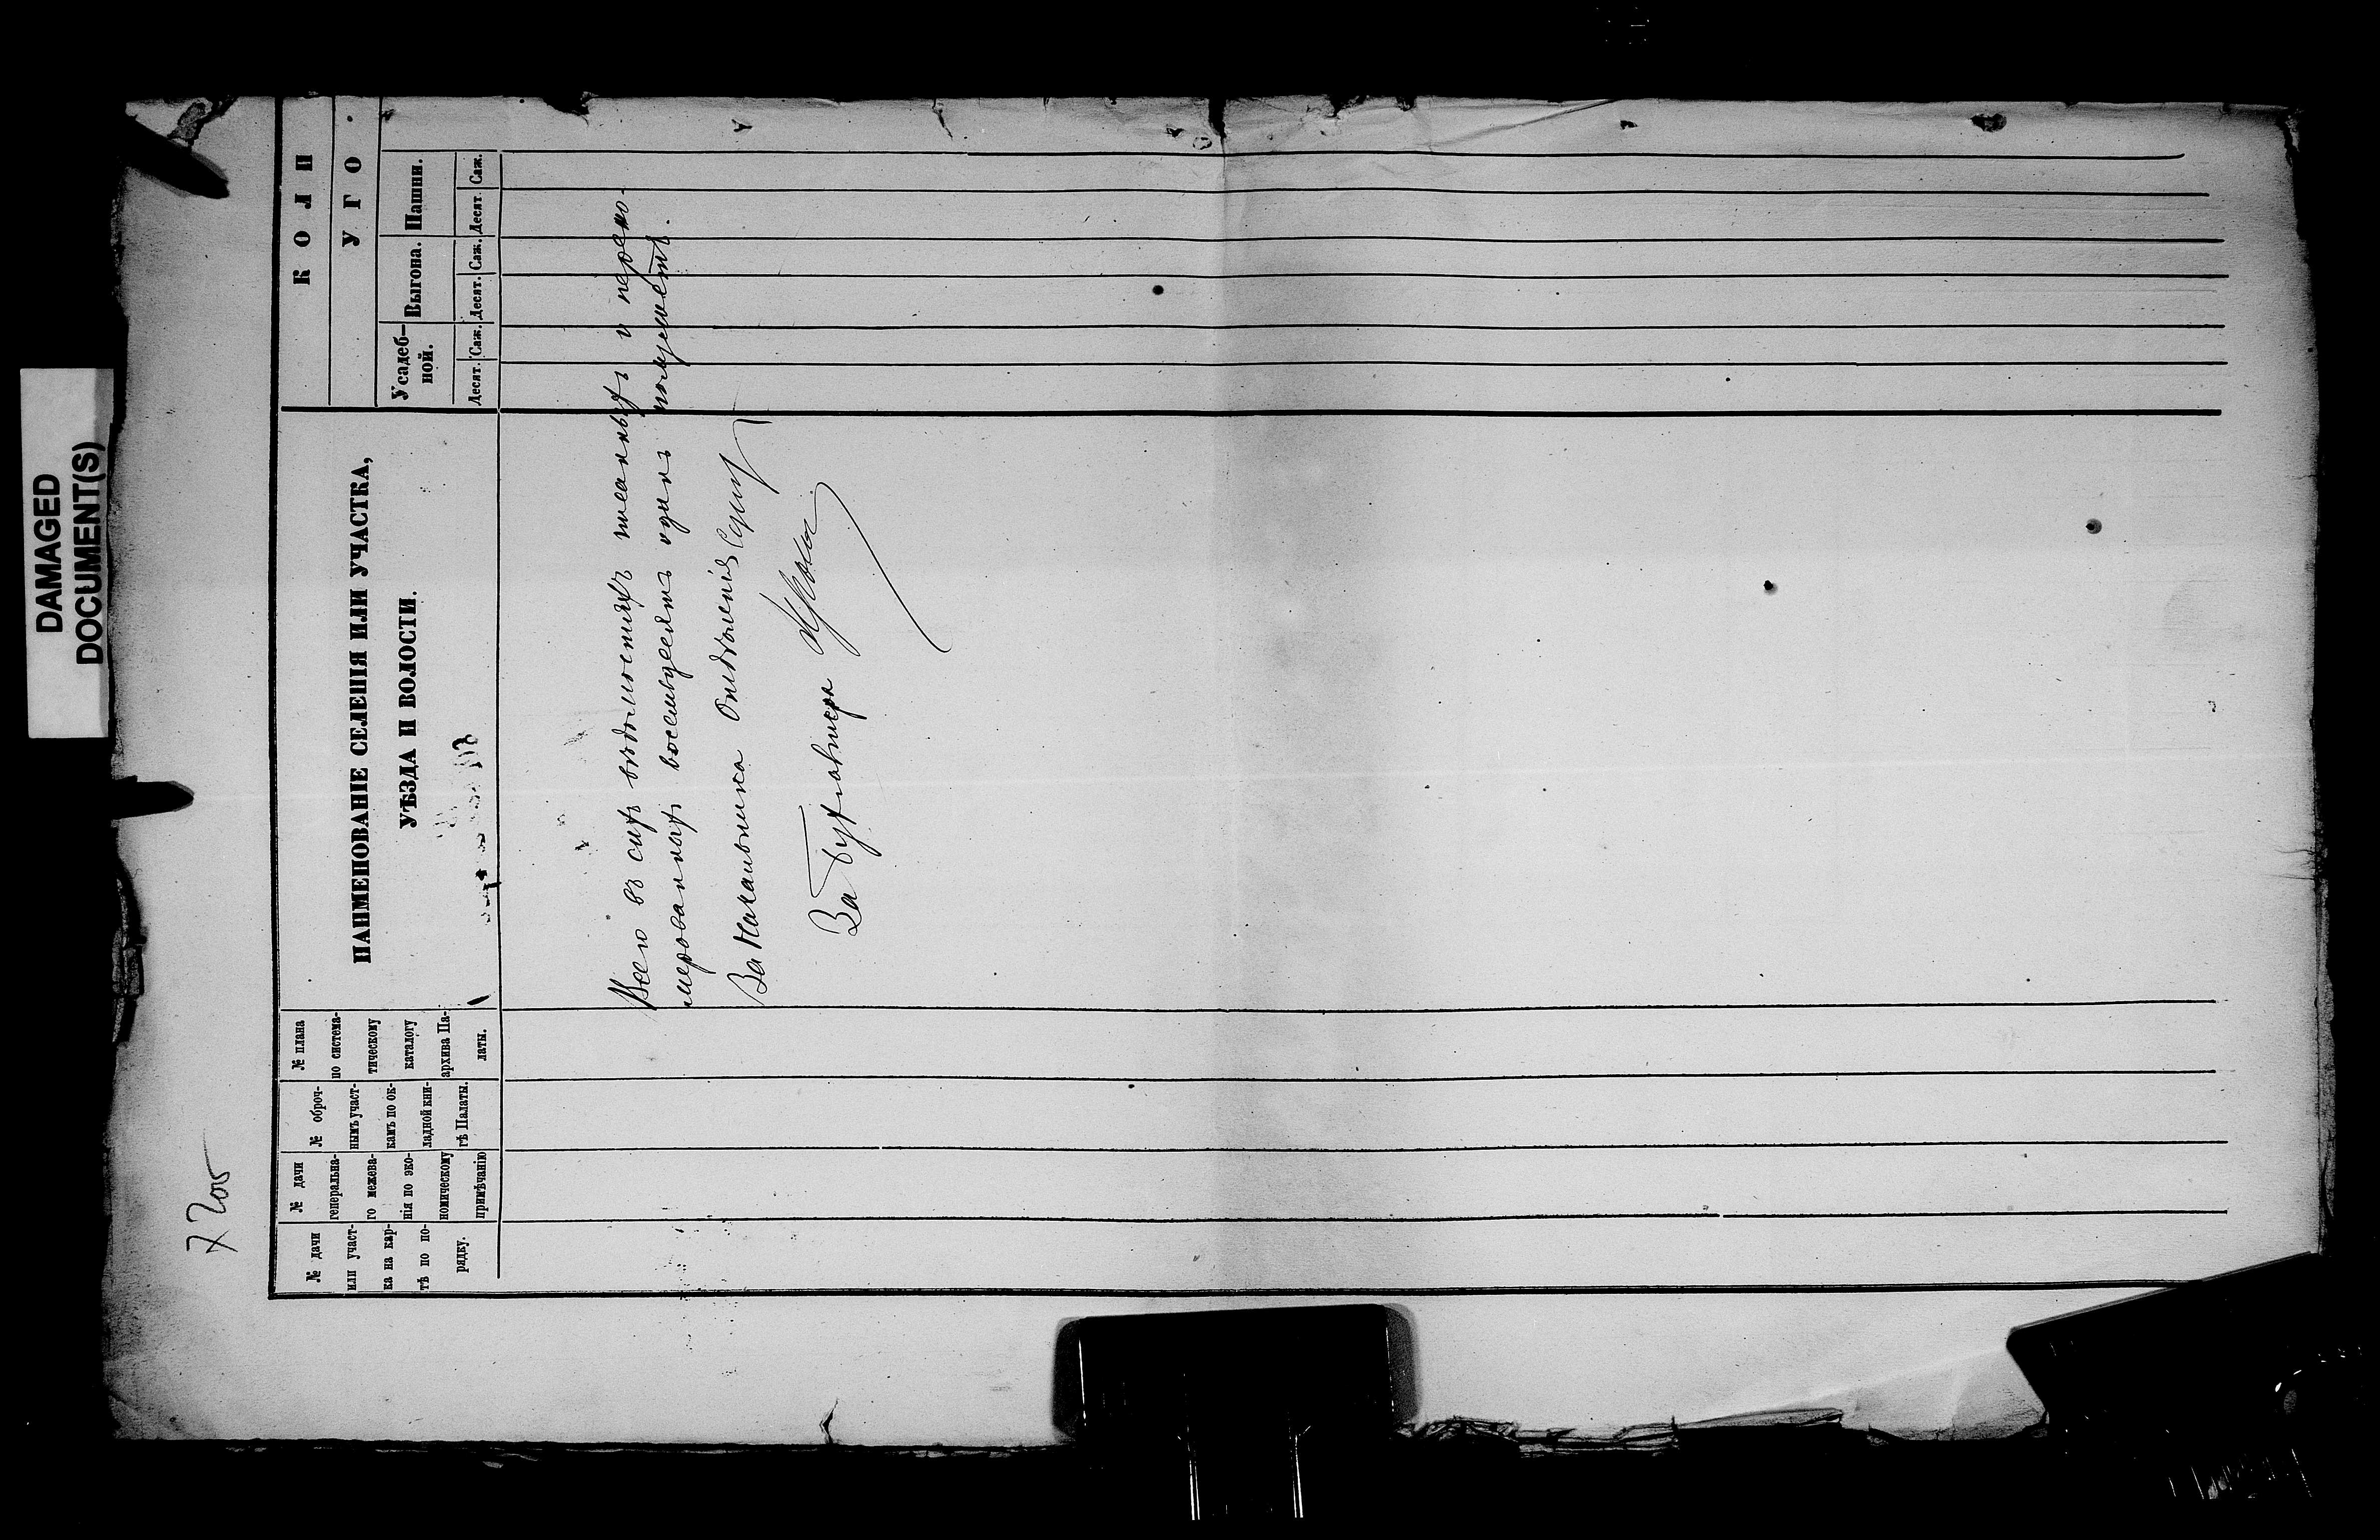 DAMAGED
DOCUMENT(S)
№ дачи
или участ-
ка на кар-
тѣ по по-
рядку.
№ дачи
генеральна-
го межева-
нія по эко-
номическому
примѣчанію
№ оброч-
нымъ участ-
камъ по ок-
ладной кни-
гѣ Палаты.
№ плана
по система-
тическому
каталогу
архива Па-
латы.
НАИМЕНОВАНІЕ СЕЛЕНІЯ ИЛИ УЧАСТКА,
УѢЗДА И ВОЛОСТИ.
К О Л И
У Г О
Усадеб-
ной.
Выгона.
Пашни.
Десят. Саж. Десят. Саж. Десят. Саж.
Всего въ сихъ вѣдомостяхъ писанныхъ и
мерованныхъ восемьдесятъ одинъ
За Начальника Отдѣленія
За Бухгалтера